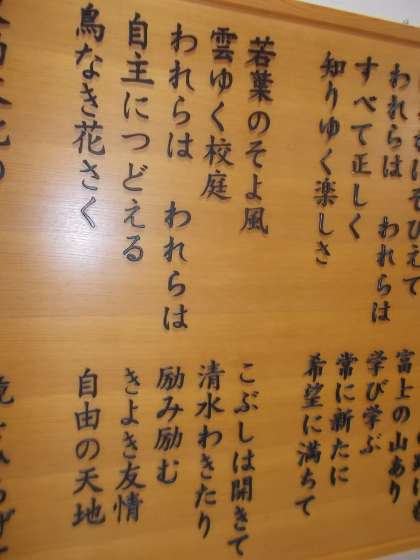 にそびえて　富士の山あり
われらは　われらは　学び学ぶ
すべて正しく　常に新たに
知りゆく楽しさ　希望に満ちて
若葉のそよ風　こぶしは開きて
雲ゆく校庭　清水わきたり
われらは　われらは　励み励む
自主につどえる　きよき友情
鳥なき花さく　自由の天地